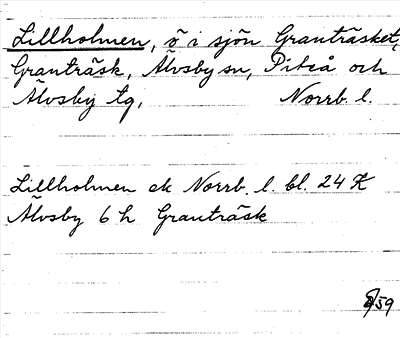 Lillholmen, ö i sjön Granträsket,
Granträsk, Älvsby sn, Piteå och
Älvsby tg, Norrb. l.
Lillholmen ek Norrb. l. bl. 24 K
Älvsby 6 h Granträsk
/59